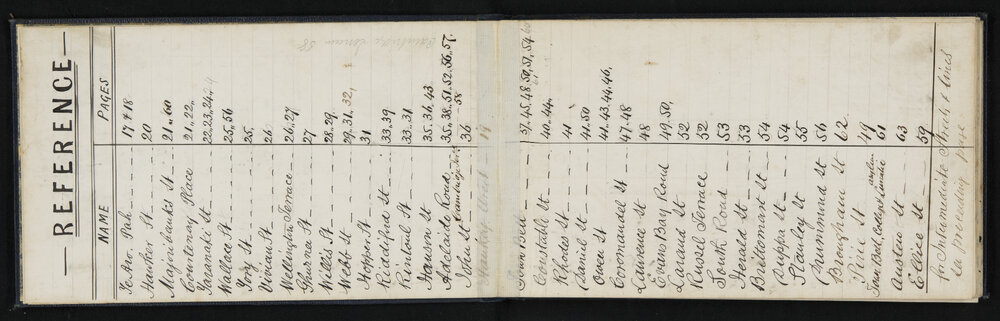 REFERENCE
NAME PAGES
Te Aro Pah 17 & 18
Hawker St 20
Majoribanks St 21-60
Courtenay Place 21, 22
Taranaki St 22, 23, 24
Wallace St 25, 56
Tory St 25
Vivian St 26
Wellington Terrace 26, 27
Ghuznee St 27
Willis St 28, 29
Webb St 29, 31, 32
Hopper St 31
Riddiford St 33, 39
Rintoul St 33, 34
Hanson St 35, 36, 43
Adelaide Road 35, 38, 51, 52, 56, 57
John St 36 58
Cambridge Terrace 58
Town Belt 37, 45, 48, 50, 51, 54
Constable St 40, 44
Rhodes St 41
Daniel St 41, 50
Owen St 41, 43, 44, 46
Coromandel St 47-48
Lawrence St 48
Evans Bay Road 49, 50
Laraud St 52
Russel Terrace 52
South Road 53
Herald St 53
Britomart St 54
St 54
Stanley St 55
Drummond St 56
Brougham St 62
Pirie St 49
Town Belt 61
Austin St 63
Ellice St 59
for Intermediate Streets & lines
in preceding page